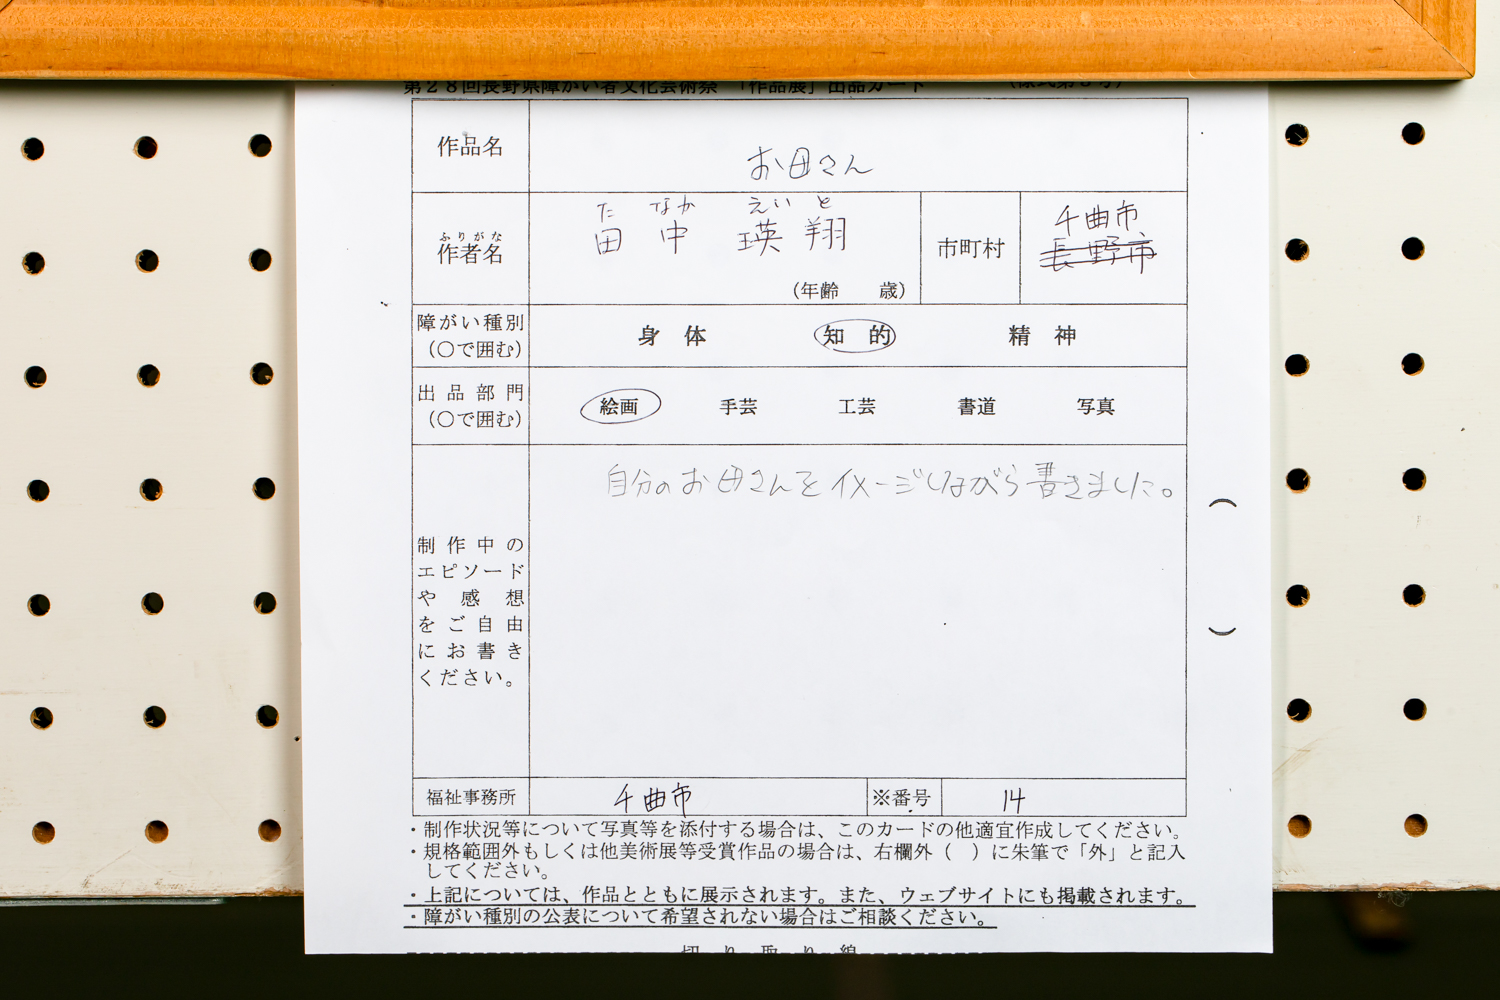 第28回長野県障がい者文化芸術祭 「作品展」出品カード (様式第3号)
作品名
お母さん
ふりがな
作者名
た なか えい と
田 中 瑛 翔
(年齢 歳)
市町村
千曲市
長野市
障がい種別
(〇で囲む)
身 体 知 的 精 神
出品部門
(〇で囲む)
絵画 手芸 工芸 書道 写真
制作中の
エピソード
や感想
をご自由
にお書き
ください。
自分のお母さんをイメージしながら書きました。
( )
福祉事務所 千曲市 ※番号 14
・制作状況等について写真等を添付する場合は、このカードの他適宜作成してください。
・規格範囲外もしくは他美術展等受賞作品の場合は、右欄外( )に朱筆で「外」と記入
してください。
・上記については、作品とともに展示されます。また、ウェブサイトにも掲載されます。
・障がい種別の公表について希望されない場合はご相談ください。
切 り 取 り 線